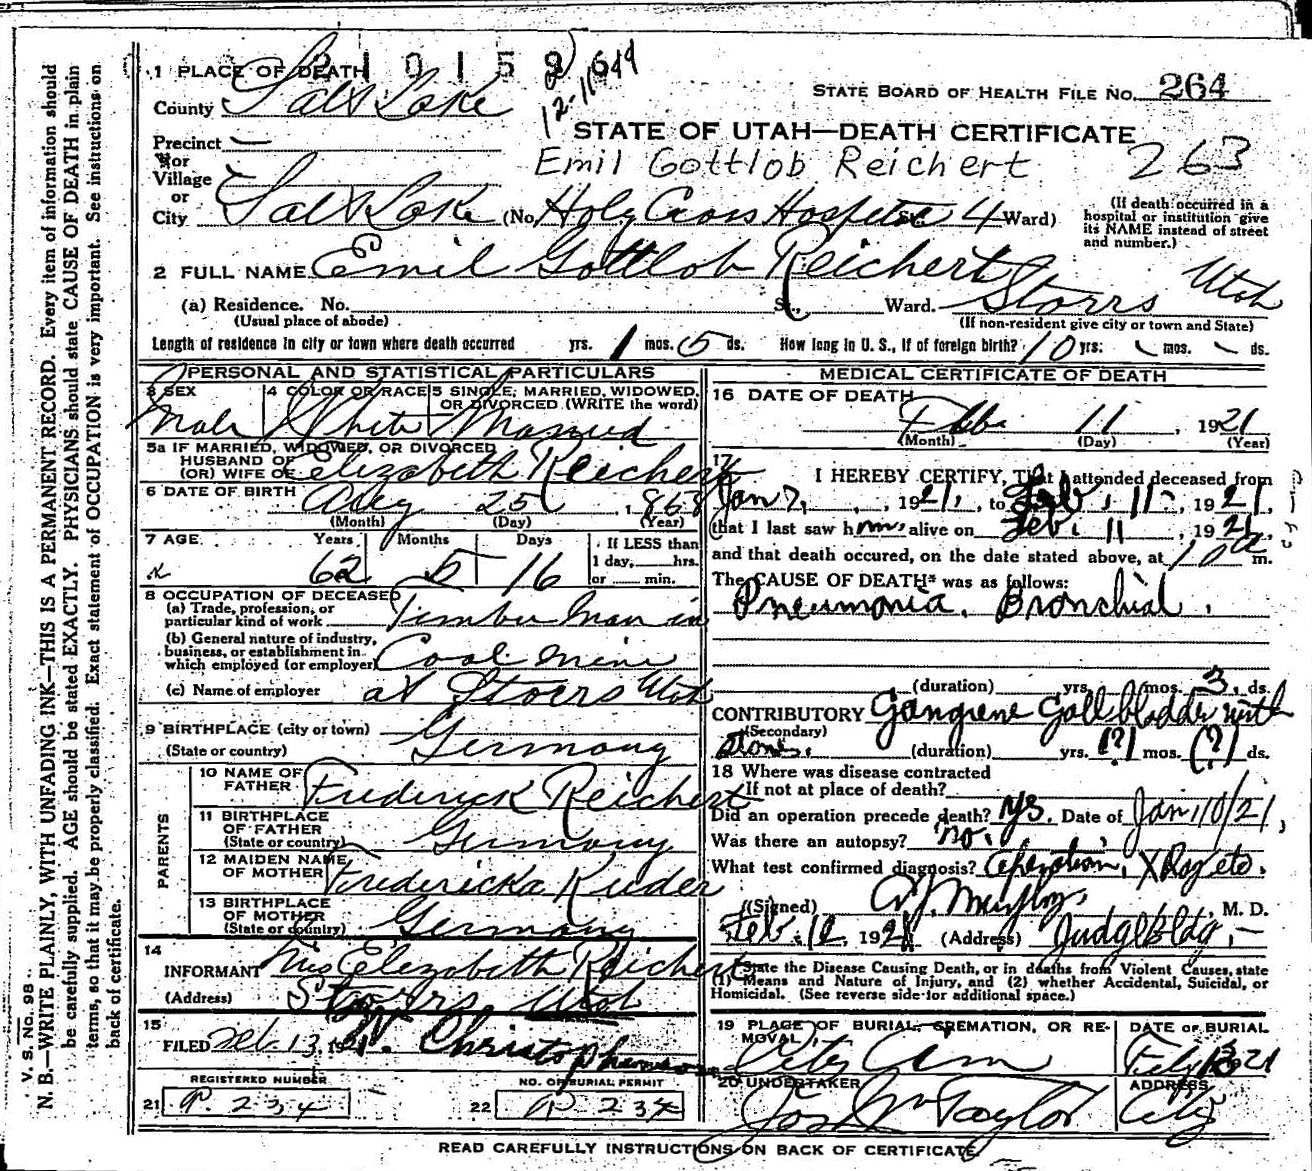 V. S. No. 98.
N. B.—WRITE PLAINLY, WITH UNFADING INK—THIS IS A PERMANENT RECORD. Every item of information should
be carefully supplied. AGE should be stated EXACTLY. PHYSICIANS should state CAUSE OF DEATH in plain
terms, so that it may be properly classified. Exact statement of OCCUPATION is very important. See instructions on
back of certificate.
1 PLACE OF DEATH
County Salt Lake
Precinct —
or
Village
or
City Salt Lake (No. Holy Cross Hospital St. 4 Ward)
STATE BOARD OF HEALTH FILE No. 264
STATE OF UTAH—DEATH CERTIFICATE
Emil Gottlob Reichert 263
(If death occurred in a
hospital or institution give
its NAME instead of street
and number.)
2 FULL NAME Emil Gottlob Reichert
(a) Residence. No. St., Ward. Storrs Utah
(Usual place of abode) (If non-resident give city or town and State)
Length of residence in city or town where death occurred yrs. 1 mos. 5 ds. How long in U. S., if of foreign birth? 10 yrs. — mos. — ds.
PERSONAL AND STATISTICAL PARTICULARS
3 SEX 4 COLOR OR RACE 5 SINGLE, MARRIED, WIDOWED,
OR DIVORCED (WRITE the word)
Male White Married
5a IF MARRIED, WIDOWED, OR DIVORCED
HUSBAND OF
(OR) WIFE OF Elizabeth Reichert
6 DATE OF BIRTH Aug 25, 1858
(Month) (Day) (Year)
7 AGE Years Months Days If LESS than
1 day, hrs.
or min.
62 5 16
8 OCCUPATION OF DECEASED
(a) Trade, profession, or
particular kind of work Timber Man in
(b) General nature of industry,
business, or establishment in
which employed (or employer) Coal Mine
(c) Name of employer at Storrs Utah
9 BIRTHPLACE (city or town)
(State or country) Germany
PARENTS
10 NAME OF
FATHER Frederick Reichert
11 BIRTHPLACE
OF FATHER
(State or country) Germany
12 MAIDEN NAME
OF MOTHER Fredericka Ruder
13 BIRTHPLACE
OF MOTHER
(State or country) Germany
14
INFORMANT Mrs Elizabeth Reichert
(Address) Storrs, Utah
15
FILED Feb. 13, 1921. Christopherson
REGISTERED NUMBER
21 P. 234
NO. OF BURIAL PERMIT
22 P. 234
MEDICAL CERTIFICATE OF DEATH
16 DATE OF DEATH
Feb. 11, 1921
(Month) (Day) (Year)
17
I HEREBY CERTIFY, That I attended deceased from
Jan 7, , 1921, to Feb. 11-, 1921,
that I last saw him alive on Feb. 11, 1921,
and that death occured, on the date stated above, at 10 a m.
The CAUSE OF DEATH* was as follows:
Pneumonia, Bronchial.
(duration) yrs. mos. 3. ds.
CONTRIBUTORY Gangrene Gall bladder with
(Secondary)
stones. (duration) yrs. (?) mos. (?) ds.
18 Where was disease contracted
If not at place of death?
Did an operation precede death? yes. Date of Jan 10/21,
Was there an autopsy? no.
What test confirmed diagnosis? Operation, XRay etc.
(Signed) , M. D.
Feb. 12, 1921 (Address) Judge Bldg.—
*State the Disease Causing Death, or in deaths from Violent Causes, state
(1) Means and Nature of Injury, and (2) whether Accidental, Suicidal, or
Homicidal. (See reverse side for additional space.)
19 PLACE OF BURIAL, CREMATION, OR RE-
MOVAL, City Cem
DATE OF BURIAL
Feby 13 1921
20 UNDERTAKER
Jos Wm Taylor
ADDRESS
City
READ CAREFULLY INSTRUCTIONS ON BACK OF CERTIFICATE